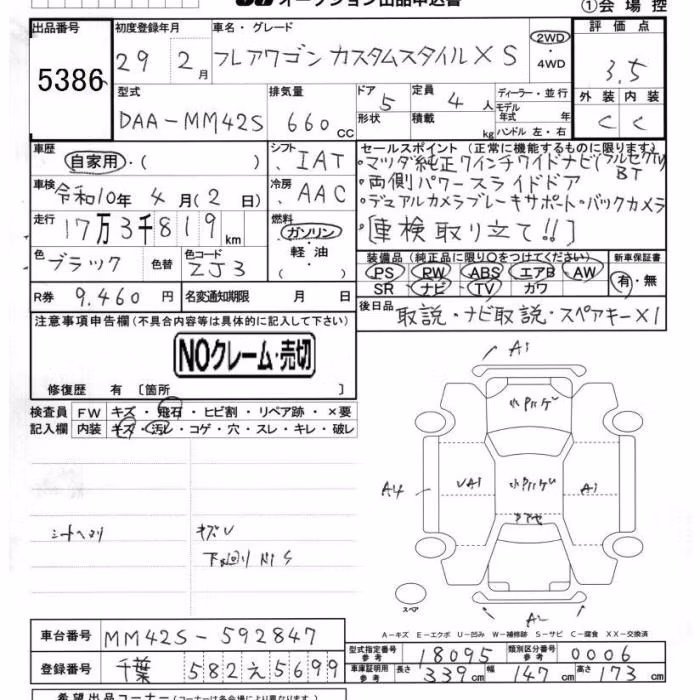 オークション出品申込書
①会場控
出品番号 初度登録年月 車名・グレード 評価点
5386 29 2月 フレアワゴン カスタムスタイルXS 2WD・4WD 3.5
型式 排気量 ドア 5 定員 4人 ディーラー・並行 外装 内装
DAA-MM42S 660cc 形状 積載 kg モデル年式 年 ハンドル 左・右 C C
車歴 自家用・( ) シフト IAT セールスポイント (正常に機能するものに限ります)
・マツダ純正7インチワイドナビ(フルセグTV BT
車検 令和10年4月(2日) 冷房 AAC ・両側パワースライドドア
・デュアルカメラブレーキサポート・バックカメラ
走行 17万3千819km 燃料 ガソリン・軽油・( ) ・[車検取り立て!!]
色 ブラック 色替 色コード ZJ3 装備品 (純正品に限り○をつけてください) 新車保証書
PS PW ABS エアB AW 有・無
R券 9.460円 名変通知期限 月 日 SR ナビ TV カワ
後日品 取説・ナビ取説・スペアキーX1
注意事項申告欄 (不具合内容等は具体的に記入して下さい)
NOクレーム・売切
修復歴 有 [箇所 ]
検査員 FW キズ・飛石・ヒビ割・リペア跡・×要
記入欄 内装 キズ・汚レ・コゲ・穴・スレ・キレ・破レ
A1
A4 UA1 A1
シートヘタリ キズU
スペア
A-キズ E-エクボ U-凹み W-補修跡 S-サビ C-腐食 XX-交換済
車台番号 MM42S-592847 型式指定番号 参考 18095 類別区分番号 参考 0006
登録番号 千葉 582 え 5699 車庫証明用 参考 長さ 339cm 幅 147cm 高さ 173cm
希望出品コーナー